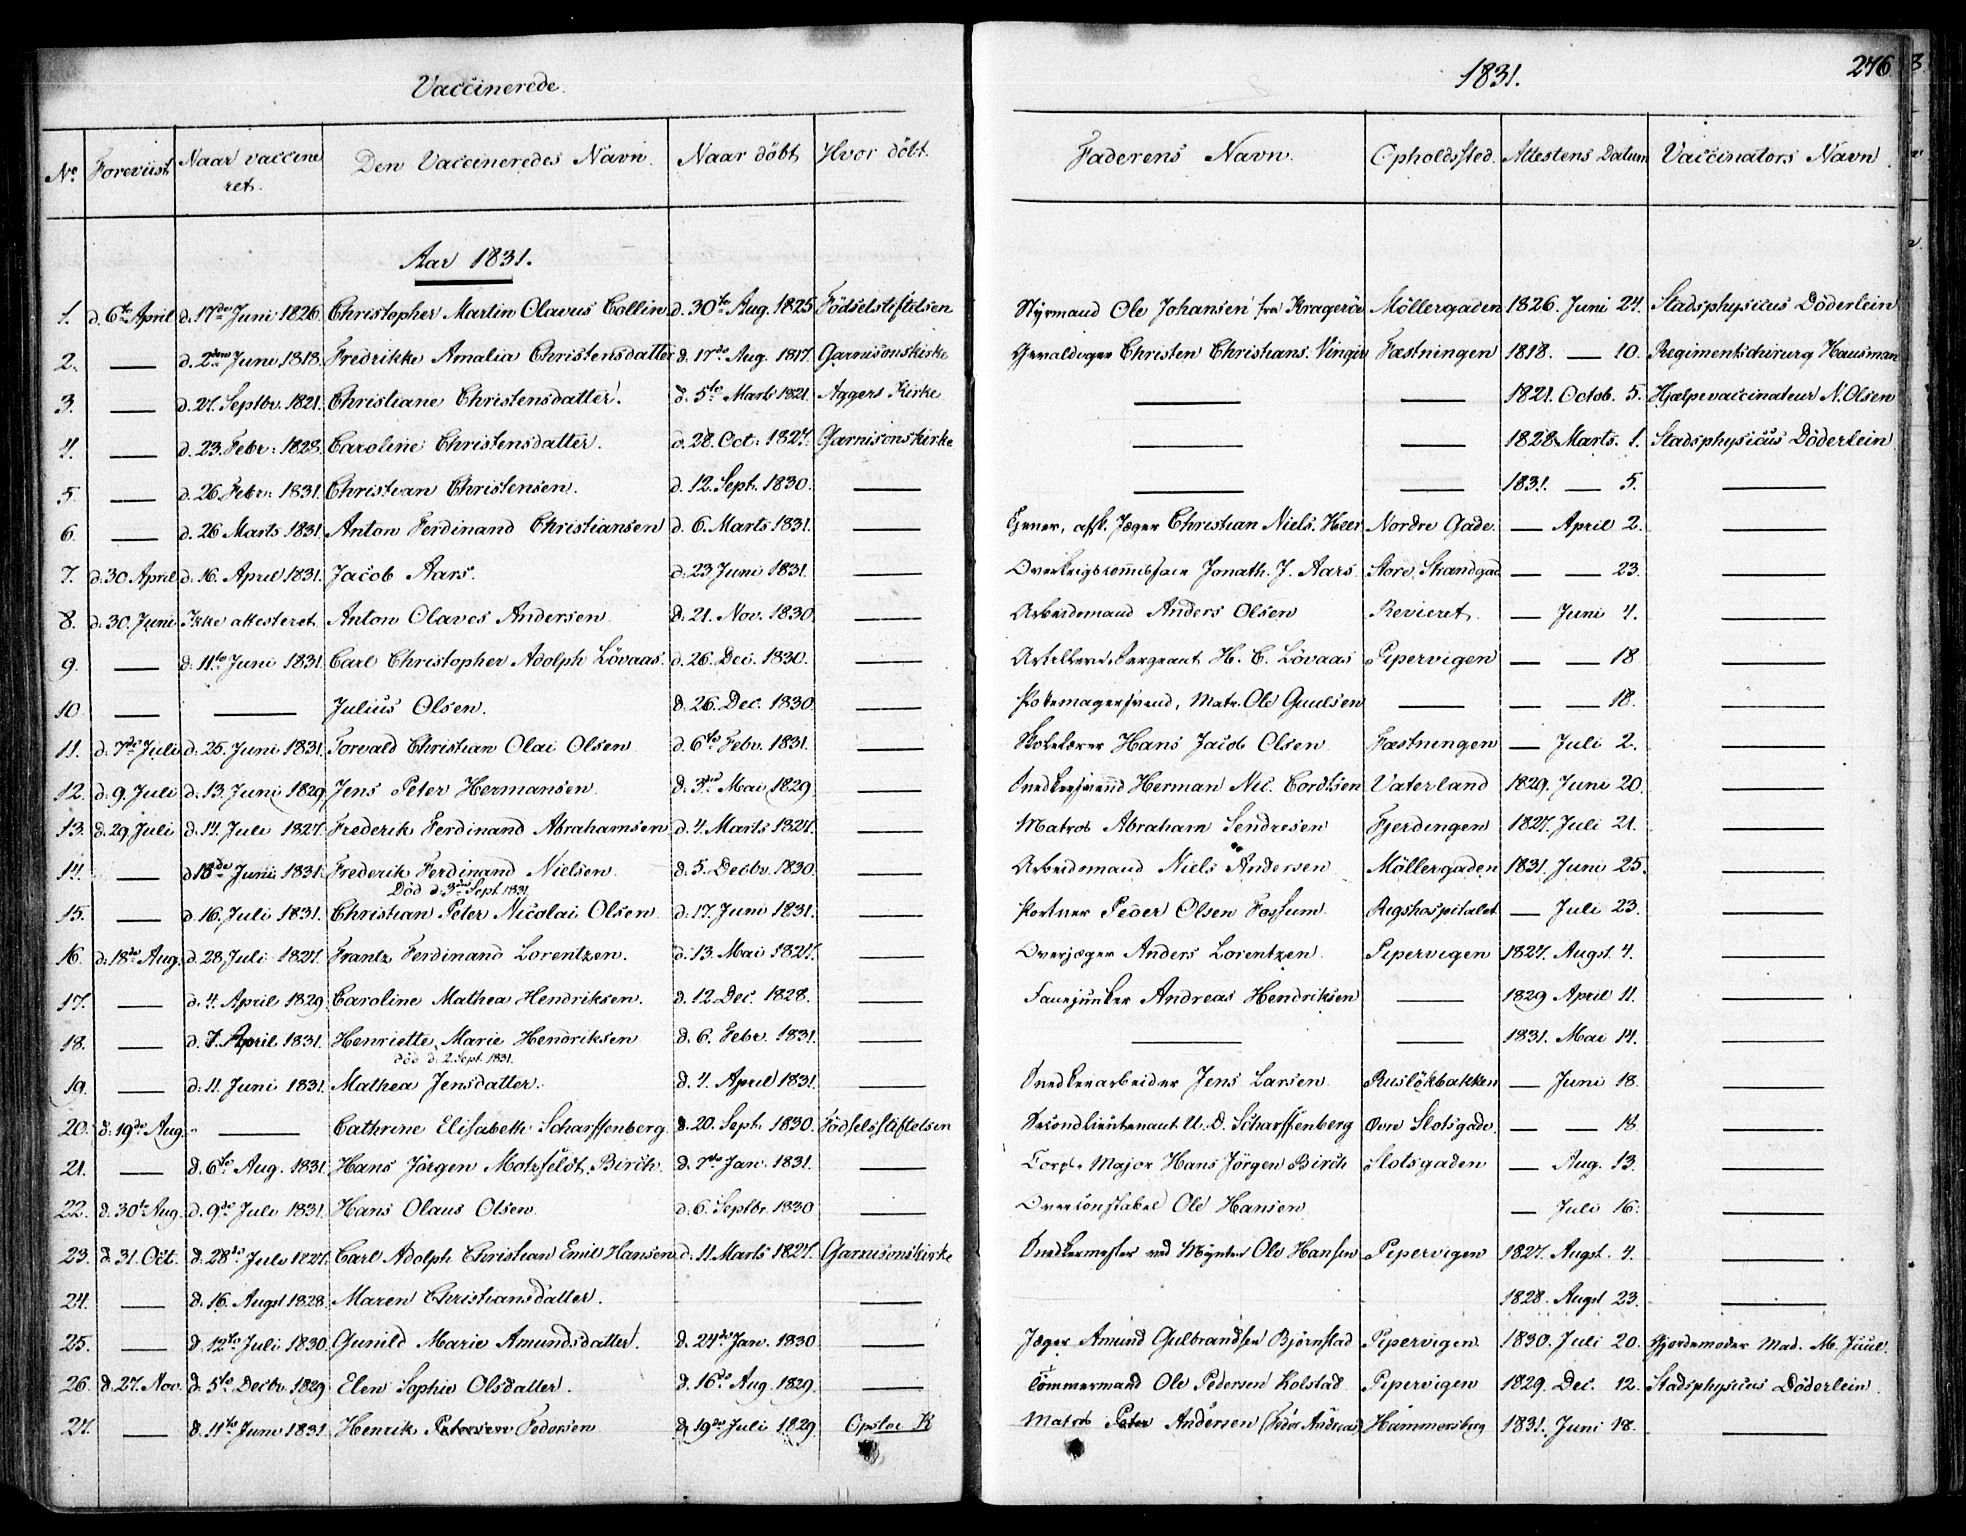 Vaccinerede.
1831.
276
No. Foreviist Naar vaccineret. Den Vaccineredes Navn. Naar döbt Hvor döbt. Faderens Navn. Opholdssted. Attestens Datum Vaccinators Navn.
Aar 1831.
1. d. 6te April d. 17de Juni 1826. Christopher Martin Olavus Collin d. 30te Aug. 1825 Födselsstiftelsen Styrmand Ole Johansen fra Krageröe Möllergaden 1826. Juni 24. Stadsphysicus Döderlein
2. — d. 2den Juni 1818. Fredrikke Amalia Christensdatter d. 17de Aug. 1817. Garnisonskirke Gevaldiger Christen Christians. Vinger Fæstningen 1818. — 10. Regimentschirurg Hausman
3. — d. 27. Septbr. 1821. Christiane Christensdatter. d. 5te Marts 1821. Aggers Kirke — — 1821. Octob. 5. Hjælpevaccinateur N. Olsen
4. — d. 23. Febr. 1828. Caroline Christensdatter. d. 28. Oct. 1827. Garnisonskirke — — 1828. Marts. 1. Stadsphysicus Döderlein
5. — d. 26. Febr. 1831. Christian Christensen. d. 12. Sept. 1830. — — — 1831. — 5. —
6. — d. 26 Marts 1831. Anton Ferdinand Christiansen d. 6. Marts 1831. — Tjener, afsk. Jæger Christian Niels. Heer Nordre Gade. — April 2. —
7. d. 30 April d. 16. April 1831. Jacob Aars. d. 23 Juni 1831. — Jonath. J. Aars Store Strandgad — — 23. —
8. d. 30. Juni Ikke attesteret. Anton Olaves Andersen d. 21. Nov. 1830. — Arbeidsmand Anders Olsen Revieret. — Juni 4. —
9. — d. 11te Juni 1831. Carl Christopher Adolph Lövaas. d. 26. Dec. 1830. — Artilleri-Sergeant H. C. Lövaas Pipervigen — — 18 —
10. — — Julius Olsen. d. 26. Dec. 1830 — Ole Guulsen — — — 18. —
11. d. 7de Juli d. 25. Juni 1831. Torvald Christian Olai Olsen d. 6te Febr. 1831. — Skolelærer Hans Jacob Olsen Fæstningen — Juli 2. —
12. d. 9. Juli d. 13. Juni 1829 Jens Peter Hermansen. d. 3die Mai 1829 — Snedkersvend Herman Nic. Cordtsen Vaterland 1829. Juni 20. —
13. d. 29. Juli d. 14. Juli 1827. Frederik Ferdinand Abrahamsen d. 4. Marts 1827. — Matros Abraham Sendresen Fjerdingen 1827. Juli 21. —
14. — d. 18de Junii 1831. Frederik Ferdinand Nielsen d. 5. Decbr. 1830. — Arbeidsmand Niels Andersen Möllergaden 1831. Juni 25. —
Död d. 3die Sept. 1831.
15. — d. 16. Juli 1831. Christian Peter Nicolai Olsen d. 17. Juni 1831. — Portner Peder Olsen Fossum Rigshospitalet — Juli 23. —
16. d. 18de Aug. d. 28. Juli 1827. Frantz Ferdinand Lorentzen. d. 13. Mai 1827. — Overjæger Anders Lorentzen Pipervigen 1827. Augst. 4. —
17. — d. 4. April 1829. Caroline Mathea Hendriksen. d. 12. Dec. 1828. — Fanejunker Andreas Hendriksen — 1829 April 11. —
18. — d. 7. April 1831. Henriette Marie Hendriksen d. 6. Febr. 1831. — — — 1831. Mai 14. —
död d. 2. Sept. 1831.
19. — d. 11. Juni 1831. Mathea Jensdatter. d. 4. April 1831. — Snedkerarbeider Jens Larsen Ruslökbakken — Juni 18. —
20. d. 19de Aug. — Cathrine Elisabeth Scharffenberg. d. 20. Sept. 1830. Födselsstiftelsen Secondlieutenant U. D. Scharffenberg Övre Slotsgade. — — 18 —
21. — d. 6te Aug. 1831. Hans Jörgen Motzfeldt Birch. d. 7de Jan. 1831. — Corps-Major Hans Jörgen Birch Slotsgaden — Aug. 13. —
22. d. 30te Aug. d. 9de Juli 1831. Hans Olaus Olsen d. 6. Septbr. 1830 — Overconstabel Ole Hansen — Juli 16. —
23. d. 31. Oct. d. 28de Juli 1827. Carl Adolph Christian Emil Hansen d. 11. Marts 1827. Garnisonskirke Snedkermester ved Mynten Ole Hansen Pipervigen 1827. Augst. 4. —
24. — d. 16. Augst 1828. Maren Christiansdatter. — 1828. Augst 23. —
25. — d. 12te Juli 1830. Gunild Marie Amundsdatter. d. 24de Jan. 1830 — Jæger Amund Gulbrandsen Björnstad Pipervigen 1830. Juli 20. Gjordemoder Mad. M. Juul.
26. d. 27. Nov. d. 5te Decbr. 1829. Elen Sophie Olsdatter. d. 16de Aug. 1829. — Tömmermand Ole Pedersen Kolstad Pipervigen 1829. Dec. 12. Stadsphysicus Döderlein
27. — d. 11te Juni 1831. Henrik Petersen Pedersen d. 19de Juli 1829 Opsloe K Matros Peter Andersen (Peder Andreas) Hammersborg 1831. Juni 18. —